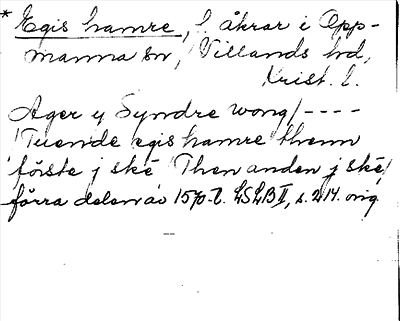 * Egis hamre, 2 åkrar i Opp-
manna sn, Villands hd,
Krist. l.
Ager y Syndre wong/----
/Tuende egis hamre thenn
förste j ské /Then anden j ské/
förra delen av 1570-t. LSLB II, s. 214. orig